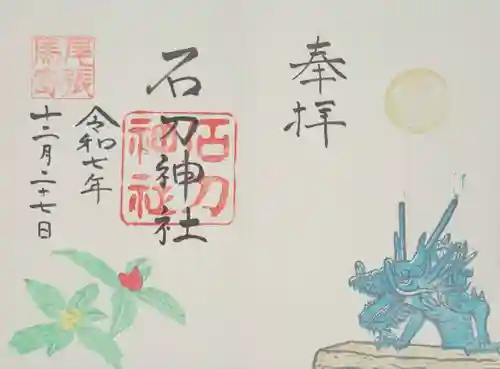 奉拝
石刀神社
石刀
神社
令和七年
十二月二十七日
尾張